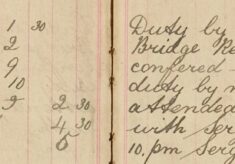 1 30
2
9
10
9 2 30
4 30
5
Duty by
Bridge Re
confered
duty by
attended
with Ser
10, pm Serg